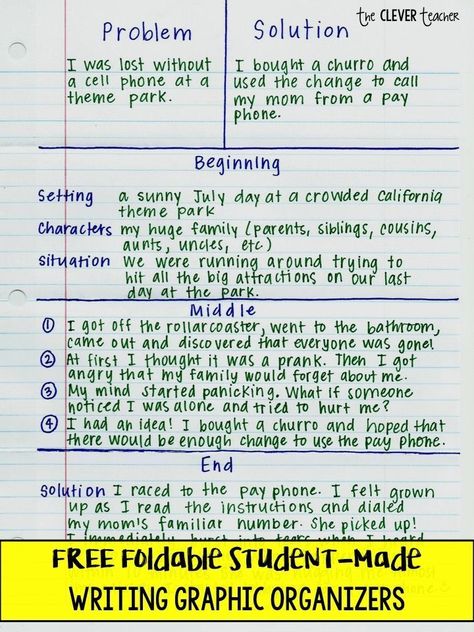 the CLEVER teacher
Problem
Solution
I was lost without
a cell phone at a
theme park.
I bought a churro and
used the change to call
my mom from a pay
phone.
Beginning
Setting a sunny July day at a crowded California
theme park
Characters my huge family (parents, siblings, cousins,
aunts, uncles, etc)
Situation We were running around trying to
hit all the big attractions on our last
day at the park.
Middle
① I got off the rollarcoaster, went to the bathroom,
came out and discovered that everyone was gone!
② At first I thought it was a prank. Then I got
angry that my family would forget about me.
③ My mind started panicking. What if someone
noticed I was alone and tried to hurt me?
④ I had an idea! I bought a churro and hoped that
there would be enough change to use the pay phone.
End
Solution I raced to the pay phone. I felt grown
up as I read the instructions and dialed
my mom's familiar number. She picked up!
I immediately burst into tears when I heard
FREE FOLDABLE STUDENT-MADE
WRITING GRAPHIC ORGANIZERS